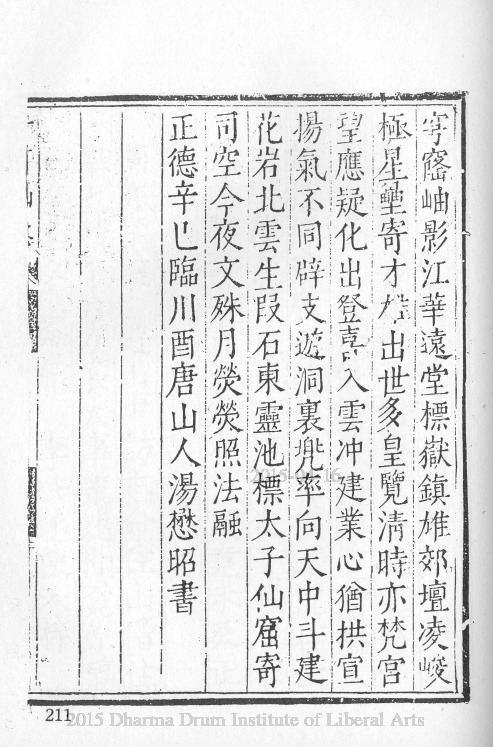 穹窿岫影江華遠堂標嶽鎮雄郊壇凌峻
極星壘寄才雄出世多皇覽清時亦梵宮
望應疑化出登喜入雲冲建業心猶拱宣
揚氣不同辟支遊洞裏兠率向天中斗建
花岩北雲生叚石東靈池標太子仙窟寄
司空今夜文殊月熒熒照法融
正德辛巳臨川酉唐山人湯懋昭書
2015-04-16
211
2015 Dharma Drum Institute of Liberal Arts